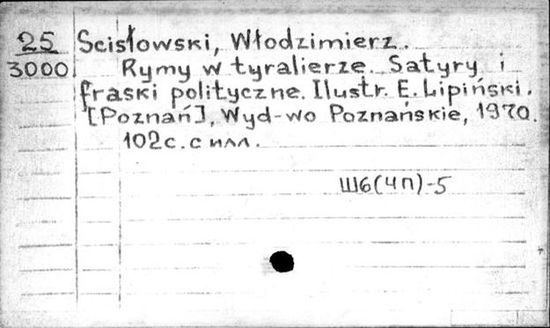 25 Scisłowski, Włodzimierz.
3000 Rymy w tyralierze. Satyry i
fraski polityczne. Ilustr. E. Lipiński.
[Poznań], Wyd-wo Poznańskie, 1970.
102с. с илл.
Ш6(4П)-5